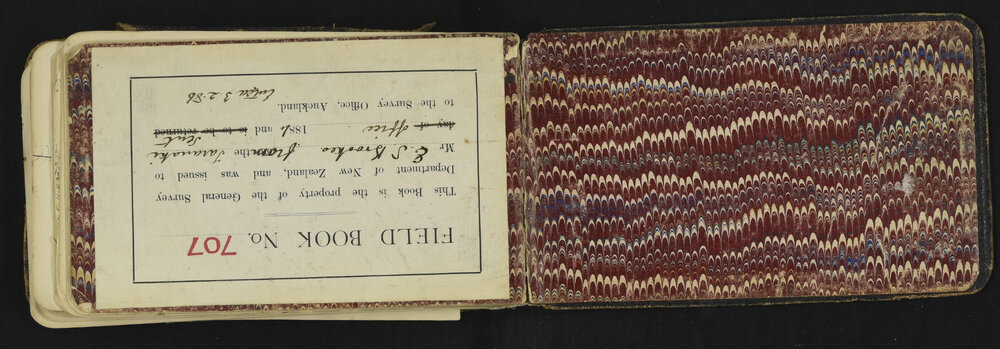 FIELD BOOK No. 707
This Book is the property of the General Survey
Department of New Zealand, and was issued to
Mr E S Brookes from the Taranaki
day of office 188 and is to be returned sent
to the Survey Office, Auckland.
3.2.86